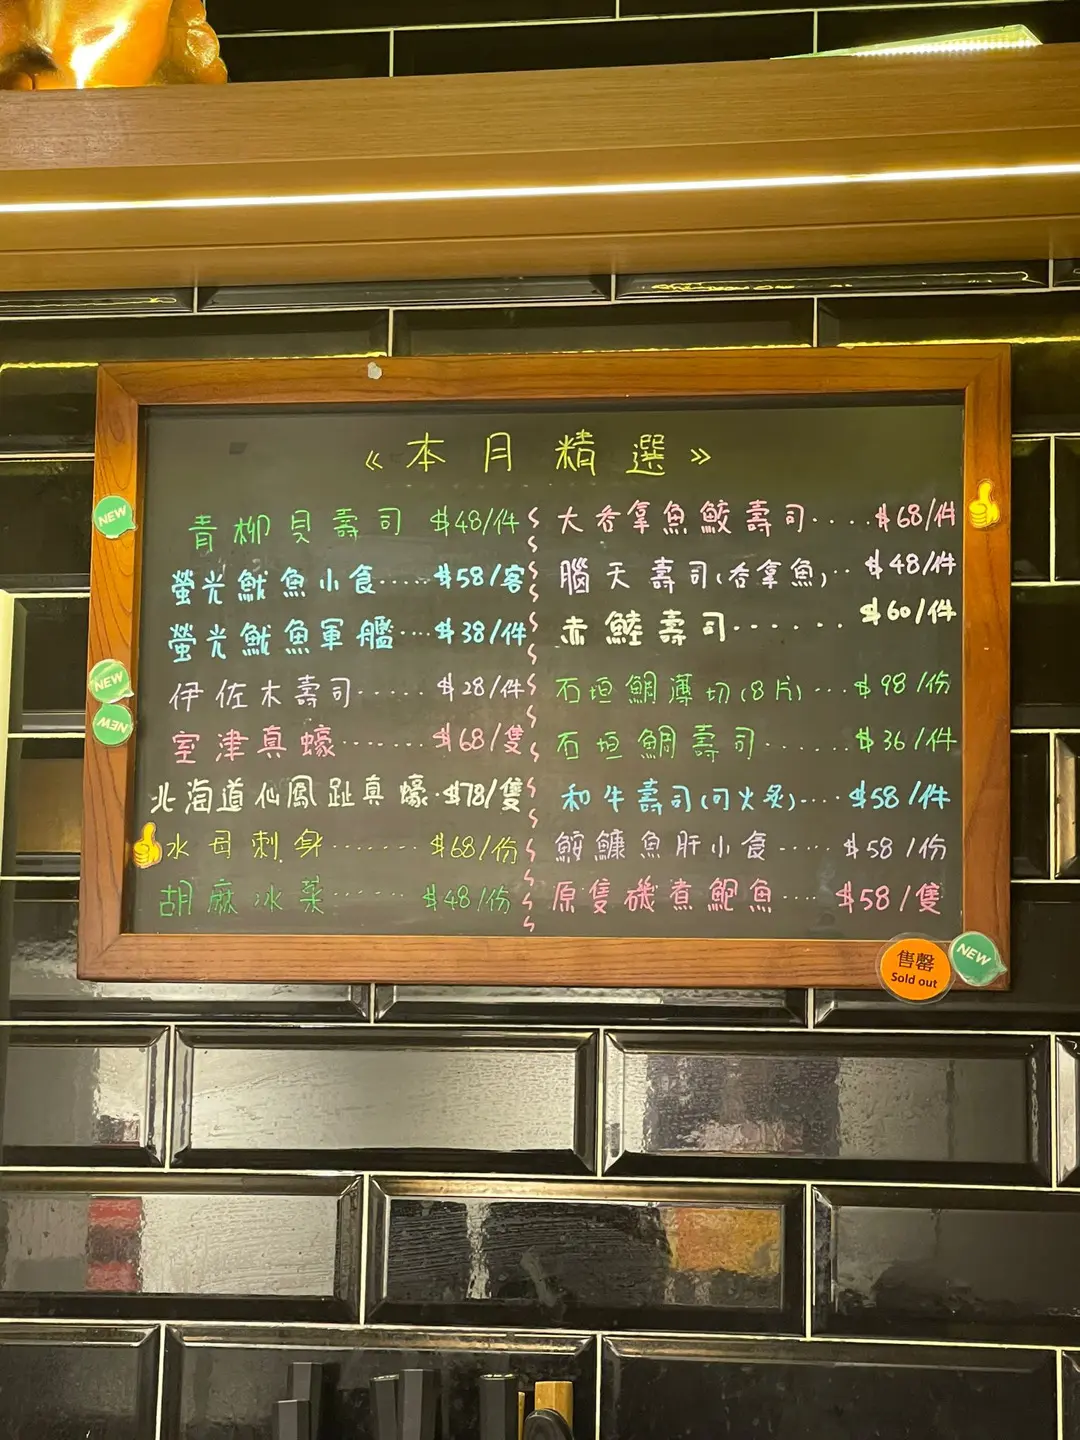 《本月精選》
NEW
青柳貝壽司 $48/件
螢光魷魚小食..... $58/客
螢光魷魚軍艦.... $38/件
NEW
伊佐木壽司...... $28/件
NEW
室津真蠔....... $68/隻
北海道仙鳳趾真蠔.$78/隻
水母刺身....... $68/份
胡麻冰菜...... $48/份
大吞拿魚鮫壽司..... $68/件
腦天壽司(吞拿魚).. $48/件
赤鯥壽司...... $60/件
石垣鯛薄切(8片)... $98/份
石垣鯛壽司....... $36/件
和牛壽司(可火炙).... $58/件
鮟鱇魚肝小食.... $58/份
原隻磯煮鮑魚.... $58/隻
售罄
Sold out
NEW